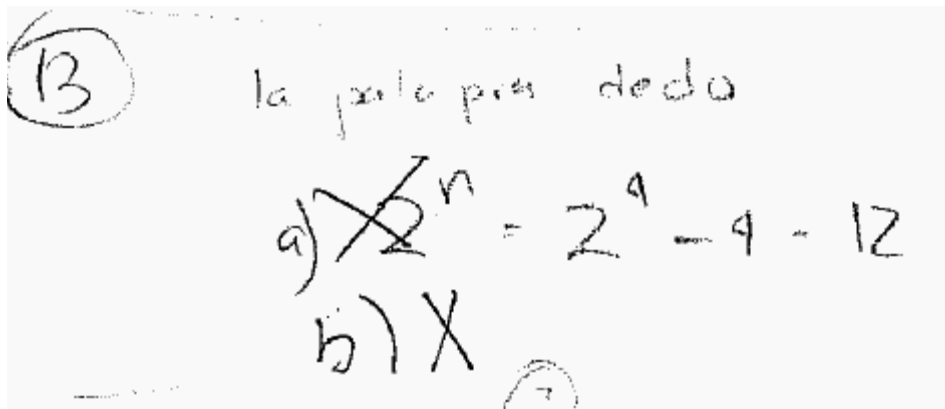 13
la palapra dedo
a) 2^n = 2^4 - 4 - 12
b) X